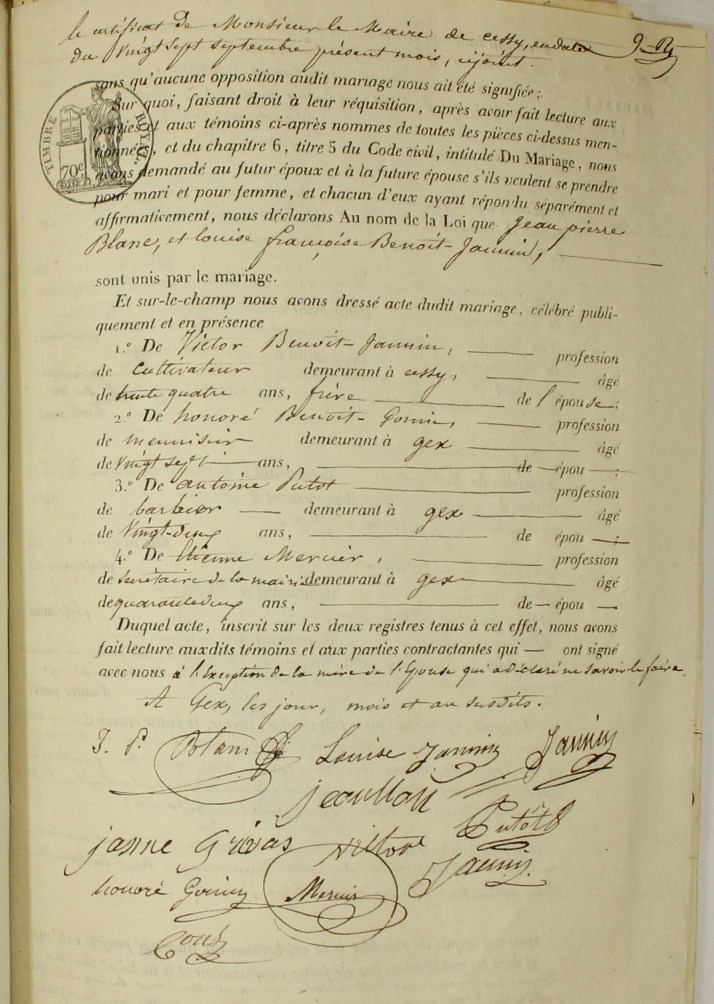 le certificat de Monsieur le Maire de cessy, en date
du Vingt Sept Septembre présent mois, cijoint.
sans qu'aucune opposition audit mariage nous ait été signifiée;
Sur quoi, faisant droit à leur réquisition, après avoir fait lecture aux
parties et aux témoins ci-après nommés de toutes les pièces ci-dessus men-
tionnées, et du chapitre 6, titre 5 du Code civil, intitulé Du Mariage, nous
avons demandé au futur époux et à la future épouse s'ils veulent se prendre
pour mari et pour femme, et chacun d'eux ayant répondu séparément et
affirmativement, nous déclarons Au nom de la Loi que Jean pierre
Blanc, et louise françoise Benoit-Jannin,
TIMBRE ROYAL
70c
sont unis par le mariage.
Et sur-le-champ nous avons dressé acte dudit mariage, célébré publi-
quement et en présence
1.º De Victor Benoit-Jannin, profession
de Cultivateur demeurant à cessy, âgé
de trente quatre ans, frère de l'épouse;
2.º De honoré Benoit- profession
de menuisier demeurant à gex âgé
de Vingt sept ans, de épou ;
3.º De antoine Putot profession
de barbier demeurant à gex âgé
de Vingt-deux ans, de épou ;
4.º De Etienne Mercier, profession
de Secrétaire de la mairie demeurant à gex âgé
de quarante deux ans, de épou
Duquel acte, inscrit sur les deux registres tenus à cet effet, nous avons
fait lecture auxdits témoins et aux parties contractantes qui ont signé
avec nous à l'Exception de la mère de l'Epouse qui a déclaré ne savoir le faire.
A Gex, les jour, mois et an susdits.
J. P. Blanc Louise Jannin Jannin
Putot
janne victor
Jannin
honoré Mercier